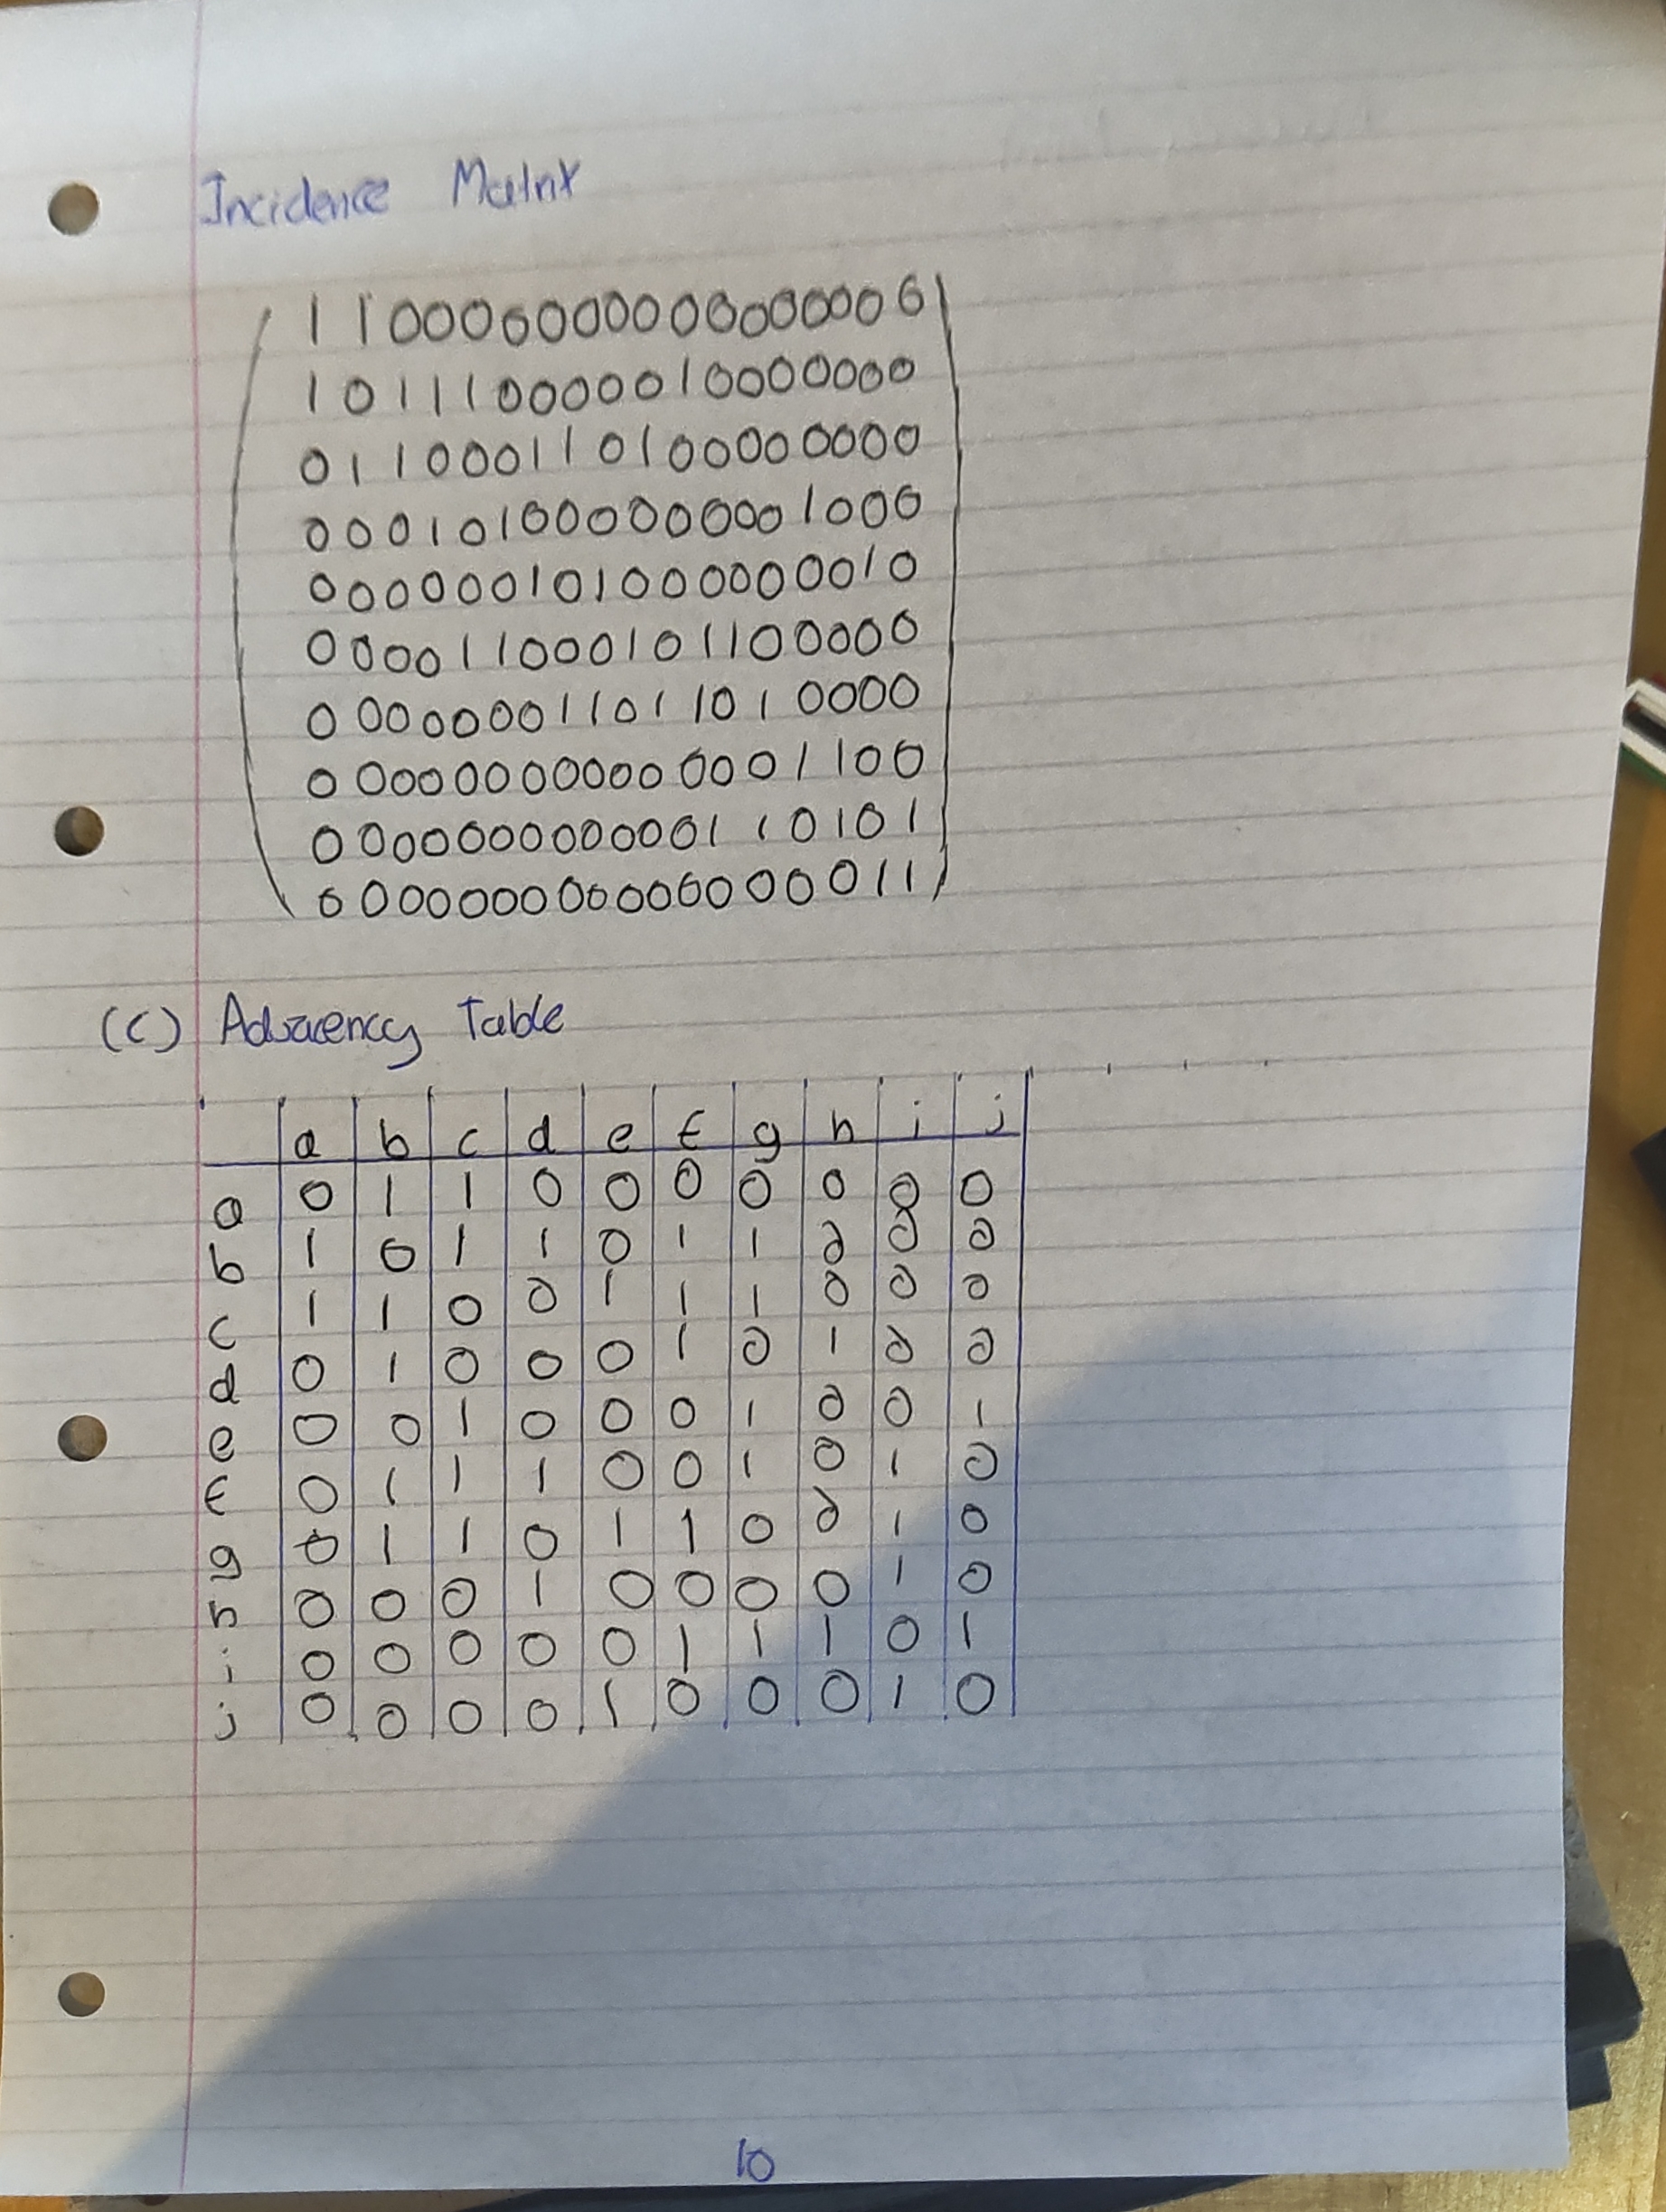 Incidence Matrix
110000000000000000
101110000010000000
011000110100000000
000101000000001000
000000101000000010
000011000101100000
000000011011010000
000000000000001100
000000000000110101
000000000000000011
(C) Adjacency Table
a b c d e f g h i j
a 0 1 1 0 0 0 0 0 0 0
b 1 0 1 1 0 1 1 0 0 0
c 1 1 0 0 1 1 1 0 0 0
d 0 1 0 0 0 1 0 1 0 0
e 0 0 1 0 0 0 1 0 0 1
f 0 1 1 1 0 0 1 0 1 0
g 0 1 1 0 1 1 0 0 1 0
h 0 0 0 1 0 0 0 0 1 0
i 0 0 0 0 0 1 1 1 0 1
j 0 0 0 0 1 0 0 0 1 0
10